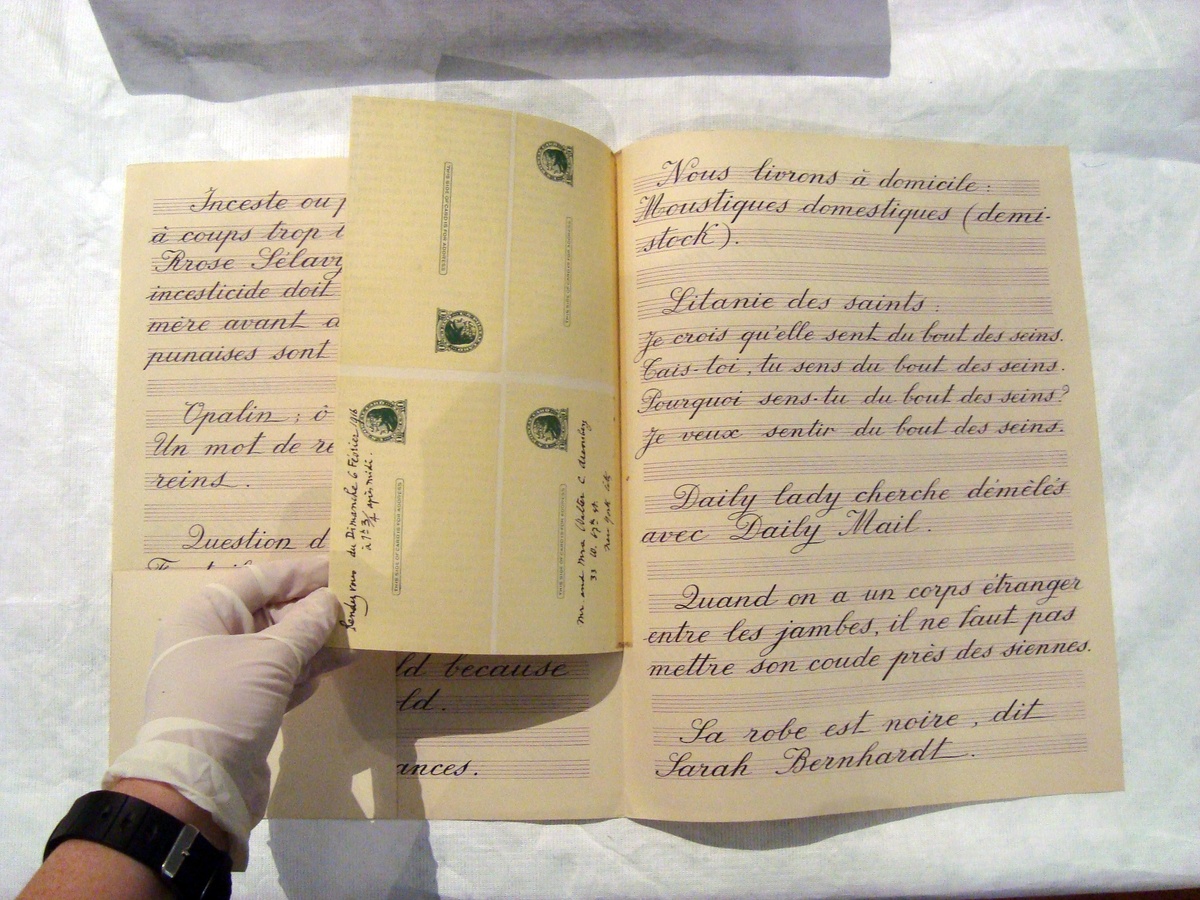 Inceste ou p
à coups trop t
Rrose Sélavy
incesticide doit
mère avant d
punaises sont
Opalin ; ô
Un mot de re
reins .
Question d
ld because
old.
ances.
THIS SIDE OF CARD IS FOR ADDRESS
THIS SIDE OF CARD IS FOR ADDRESS
Rendez vous du Dimanche 6 Février 1916
à 1h 3/4 après midi.
THIS SIDE OF CARD IS FOR ADDRESS
THIS SIDE OF CARD IS FOR ADDRESS
Mr and Mrs Walter C Arensberg
33 W. 67th st.
New York City
Nous livrons à domicile :
Moustiques domestiques (demi-
stock).
Litanie des saints :
Je crois qu'elle sent du bout des seins.
Tais-toi, tu sens du bout des seins.
Pourquoi sens-tu du bout des seins?
Je veux sentir du bout des seins.
Daily lady cherche démêlés
avec Daily Mail.
Quand on a un corps étranger
entre les jambes, il ne faut pas
mettre son coude près des siennes.
Sa robe est noire, dit
Sarah Bernhardt.